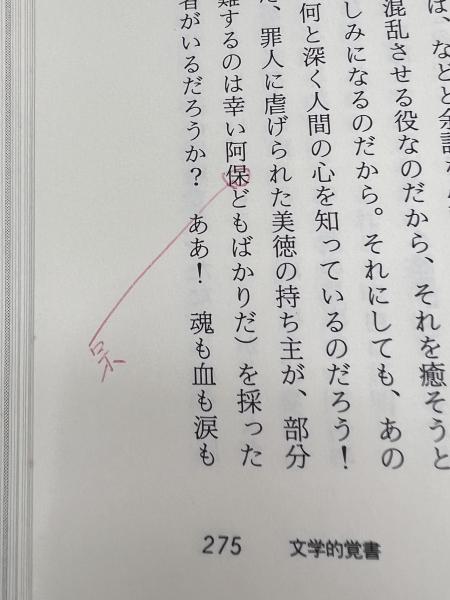 は、などと余計な
混乱させる役なのだから、それを癒そうと
しみになるのだから。それにしても、あの
何と深く人間の心を知っているのだろう！
、罪人に虐げられた美徳の持ち主が、部分
難するのは幸い阿保どもばかりだ）を採った
者がいるだろうか？　ああ！　魂も血も涙も
呆
275 文学的覚書